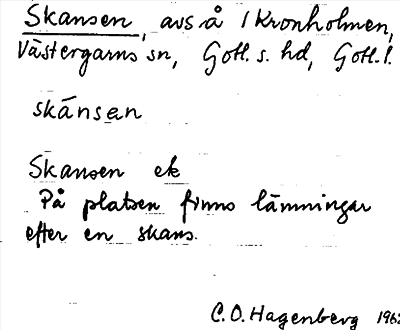 Skansen, avs å / Kronholmen,
Västergarns sn, Gotl. s. hd, Gotl. l.
skánsən
Skansen ek
På platsen finns lämningar
efter en skans.
C. O. Hagenberg